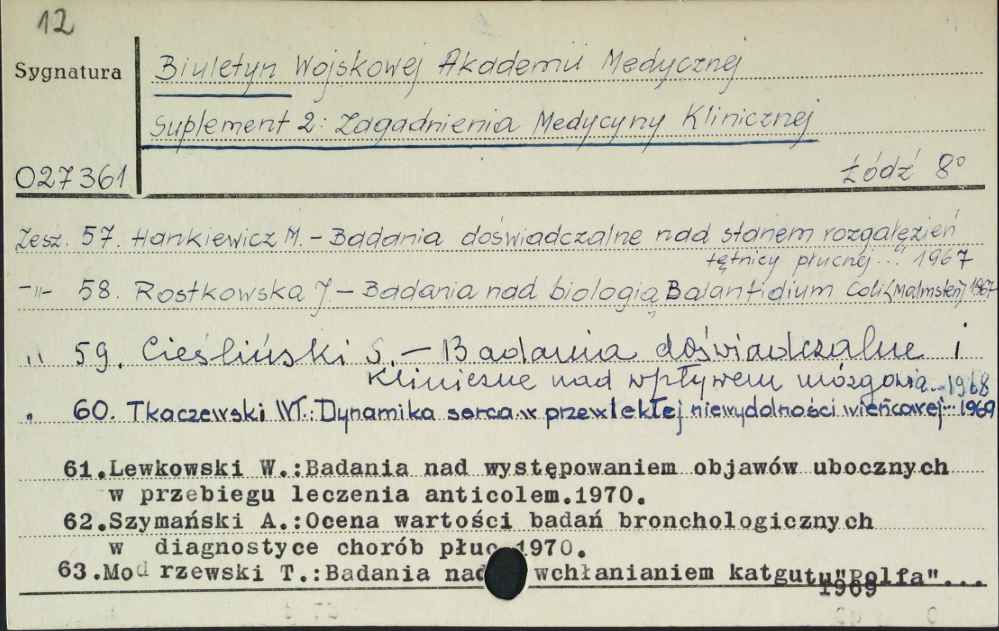 12
Sygnatura
Biuletyn Wojskowej Akademii Medycznej
Suplement 2: Zagadnienia Medycyny Klinicznej
027361
Łódź 8°
Zesz. 57. Hankiewicz M. – Badania doświadczalne nad stanem rozgałęzień
tętnicy płucnej..." 1967
-"- 58. Rostkowska J – Badania nad biologią Balantidium Coli (Malmsten) 1967
" 59. Cieśliński S. – Badania doświadczalne i
kliniczne nad wpływem mózgowia...1968
" 60. Tkaczewski Wł.: Dynamika serca w przewlekłej niewydolności wieńcowej... 1969
61.Lewkowski W.:Badania nad występowaniem objawów ubocznych
w przebiegu leczenia anticolem.1970.
62.Szymański A.:Ocena wartości badań bronchologicznych
w diagnostyce chorób płuc 1970.
63.Modrzewski T.:Badania nad wchłanianiem katgutu"Polfa"...
1969